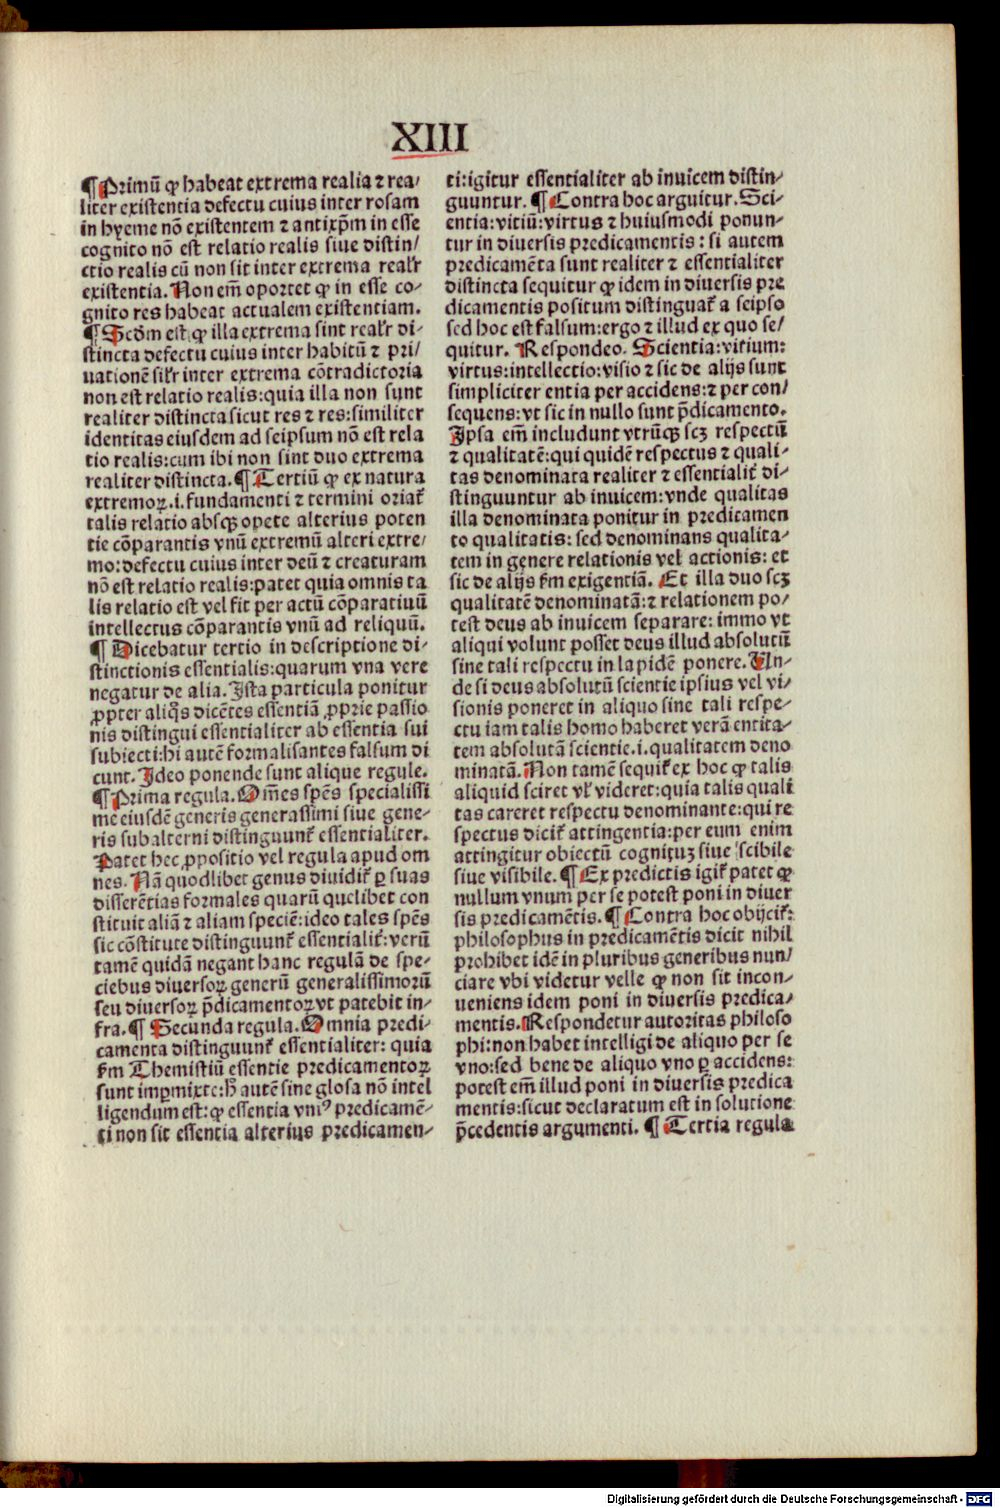 XIII
¶ Primū ꝙ habeat extrema realia ⁊ rea/
liter existentia defectu cuius inter rosam
in hyeme nō existentem ⁊ antixp̄m in esse
cognito nō est relatio realis siue distin/
ctio realis cū non sit inter extrema realr̄
existentia. Non em̄ oportet ꝙ in esse co-
gnito res habeat actualem existentiam.
¶ Scdm̄ est ꝙ illa extrema sint realr̄ di-
stincta defectu cuius inter habitū ⁊ pri/
uationē silr̄ inter extrema cōtradictoria
non est relatio realis: quia illa non sunt
realiter distincta sicut res ⁊ res: similiter
identitas eiusdem ad seipsum nō est rela
tio realis: cum ibi non sint duo extrema
realiter distincta. ¶ Tertiū ꝙ ex natura
extremoꝝ .i. fundamenti ⁊ termini oriat̄
talis relatio absqꝫ opete alterius poten
tie cōparantis vnū extremū alteri extre/
mo: defectu cuius inter deū ⁊ creaturam
nō est relatio realis: patet quia omnis ta
lis relatio est vel fit per actū cōparatiuū
intellectus cōparantis vnū ad reliquū.
¶ Dicebatur tertio in descriptione di-
stinctionis essentialis: quarum vna vere
negatur de alia. Ista particula ponitur
ꝓpter aliq̄s dicētes essentiā ꝓprie passio
nis distingui essentialiter ab essentia sui
subiecti: hi autē formalisantes falsum di
cunt. Ideo ponende sunt alique regule.
¶ Prima regula. Om̄es spēs specialissi
me eiusdē generis generassimi siue gene-
ris subalterni distinguunt̄ essentialiter.
Patet hec ꝓpositio vel regula apud om
nes. Nā quodlibet genus diuidit̄ ꝑ suas
differētias formales quarū quelibet con
stituit aliā ⁊ aliam speciē: ideo tales spēs
sic cōstitute distinguunt̄ essentialit̄: verū
tamē quidā negant hanc regulā de spe-
ciebus diuersoꝝ generū generalissimorū
seu diuersoꝝ p̄dicamentoꝝ vt patebit in-
fra. ¶ Secunda regula. Omnia predi-
camenta distinguunt̄ essentialiter: quia
fm̄ Themistiū essentie predicamentoꝝ
sunt imꝑmixte: h̄ autē sine glosa nō intel
ligendum est: ꝙ essentia vniꝰ predicamē-
ti non sit essentia alterius predicamen-
ti: igitur essentialiter ab inuicem distin-
guuntur. ¶ Contra hoc arguitur. Sci-
entia: vitiū: virtus ⁊ huiusmodi ponun-
tur in diuersis predicamentis: si autem
predicamēta sunt realiter ⁊ essentialiter
distincta sequitur ꝙ idem in diuersis pre
dicamentis positum distinguat̄ a seipso
sed hoc est falsum: ergo ⁊ illud ex quo se/
quitur. Respondeo. Scientia: vitium:
virtus: intellectio: visio ⁊ sic de alijs sunt
simpliciter entia per accidens: ⁊ per con/
sequens: vt sic in nullo sunt p̄dicamento.
Ipsa em̄ includunt vtrūqꝫ scꝫ respectū
⁊ qualitatē: qui quidē respectus ⁊ quali-
tas denominata realiter ⁊ essentialit̄ di-
stinguuntur ab inuicem: vnde qualitas
illa denominata ponitur in predicamen
to qualitatis: sed denominans qualita-
tem in genere relationis vel actionis: et
sic de alijs fm̄ exigentiā. Et illa duo scꝫ
qualitatē denominatā: ⁊ relationem po-
test deus ab inuicem separare: immo vt
aliqui volunt posset deus illud absolutū
sine tali respectu in lapidē ponere. Un-
de si deus absolutū scientie ipsius vel vi-
sionis poneret in aliquo sine tali respe-
ctu iam talis homo haberet verā entita-
tem absolutā scientie .i. qualitatem deno
minatā. Non tamē sequit̄ ex hoc ꝙ talis
aliquid sciret vl̄ videret: quia talis quali
tas careret respectu denominante: qui re
spectus dicit̄ attingentia: per eum enim
attingitur obiectū cognituꝫ siue scibile
siue visibile. ¶ Ex predictis igit̄ patet ꝙ
nullum vnum per se potest poni in diuer
sis predicamētis. ¶ Contra hoc obijcit̄:
philosophus in predicamētis dicit nihil
prohibet idē in pluribus generibus nun/
ciare vbi videtur velle ꝙ non sit incon-
ueniens idem poni in diuersis predica/
mentis. Respondetur autoritas philoso
phi: non habet intelligi de aliquo per se
vno: sed bene de aliquo vno ꝑ accidens:
potest em̄ illud poni in diuersis predica
mentis: sicut declaratum est in solutione
p̄cedentis argumenti. ¶ Tertia regula
Digitalisierung gefördert durch die Deutsche Forschungsgemeinschaft - DFG